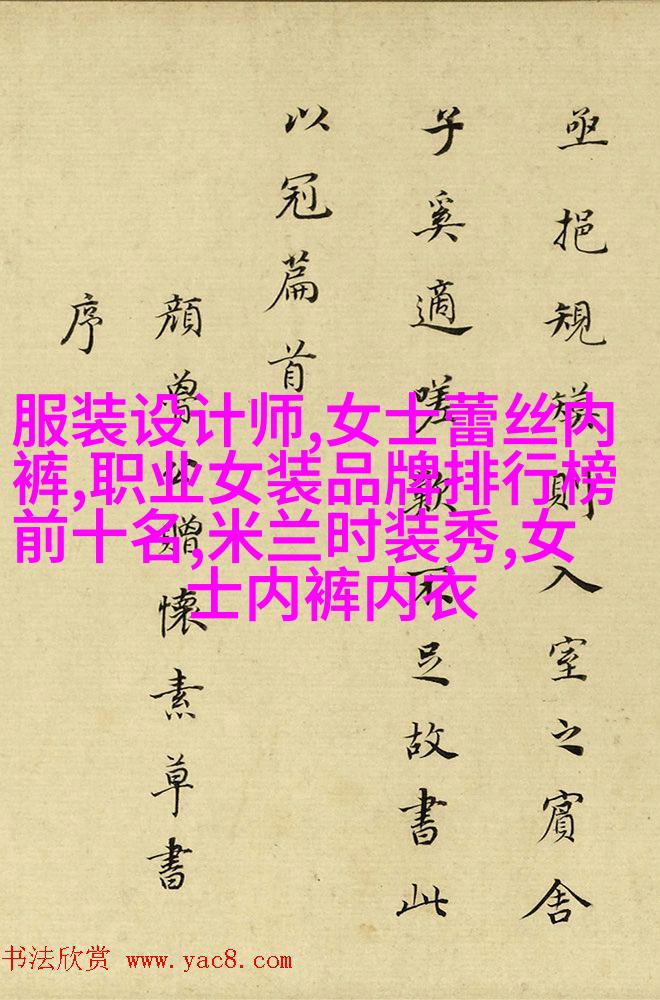 亟挹規模則入室之賓舍
子奚適嗟歎不足故書此
以冠篇首
顔魯公贈懷素草書
序
服装设计师,女士蕾丝内
裤,职业女装品牌排行榜
前十名,米兰时装秀,女
士内裤内衣
书法欣赏 www.yac8.com